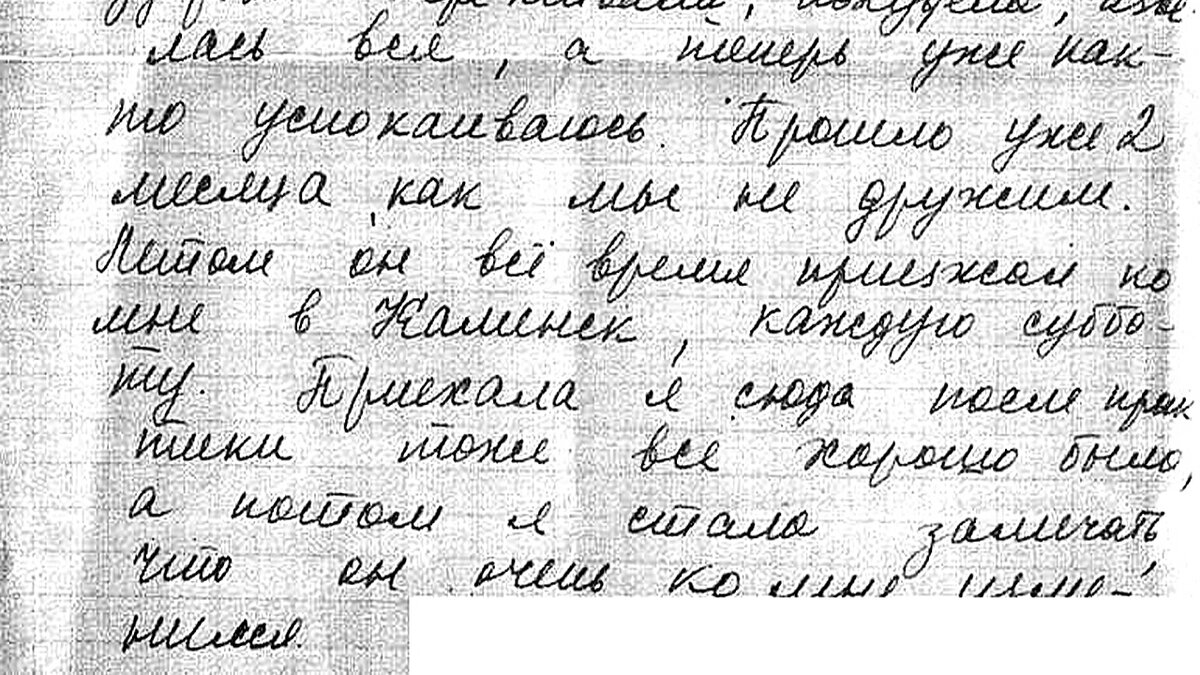 лась вся, а теперь уже как-
то успокаиваюсь. Прошло уже 2
месяца как мы не дружим.
Летом он всё время приезжал ко
мне в Каменск, каждую суббо-
ту. Приехала я сюда после прак
тики тоже всё хорошо было,
а потом я стала замечать,
что он очень ко мне изме-
нился.